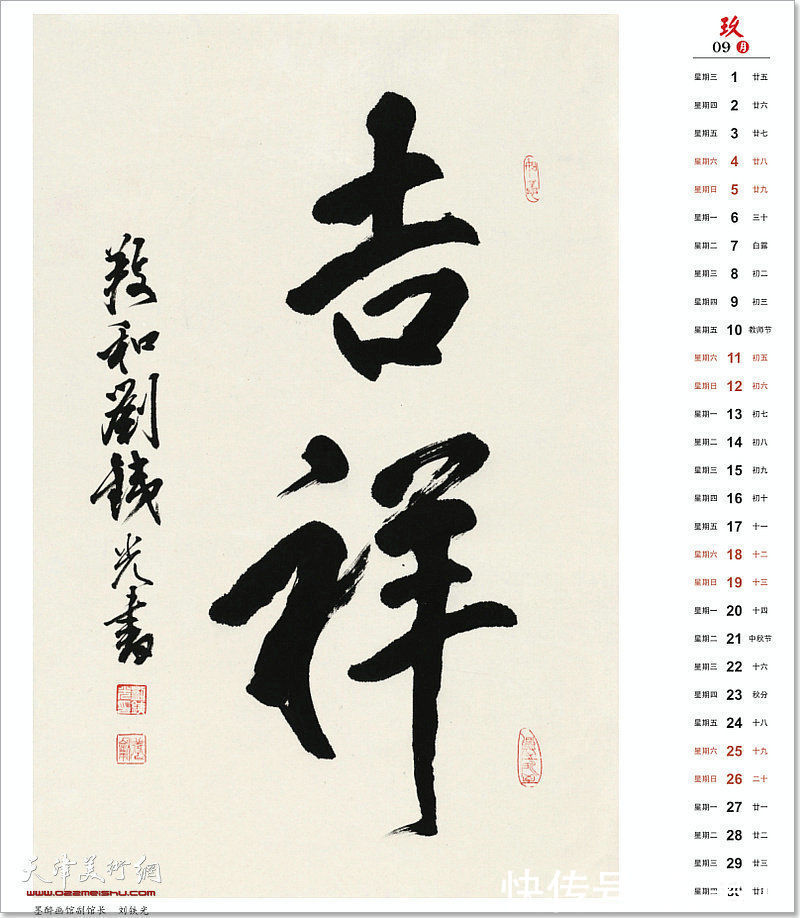 吉祥
羲和劉鐵光書
玖
09 月
星期三 1 廿五
星期四 2 廿六
星期五 3 廿七
星期六 4 廿八
星期日 5 廿九
星期一 6 三十
星期二 7 白露
星期三 8 初二
星期四 9 初三
星期五 10 教师节
星期六 11 初五
星期日 12 初六
星期一 13 初七
星期二 14 初八
星期三 15 初九
星期四 16 初十
星期五 17 十一
星期六 18 十二
星期日 19 十三
星期一 20 十四
星期二 21 中秋节
星期三 22 十六
星期四 23 秋分
星期五 24 十八
星期六 25 十九
星期日 26 二十
星期一 27 廿一
星期二 28 廿二
星期三 29 廿三
天津美術網
www.022meishu.com
墨醉画馆副馆长 刘铁光
快传号